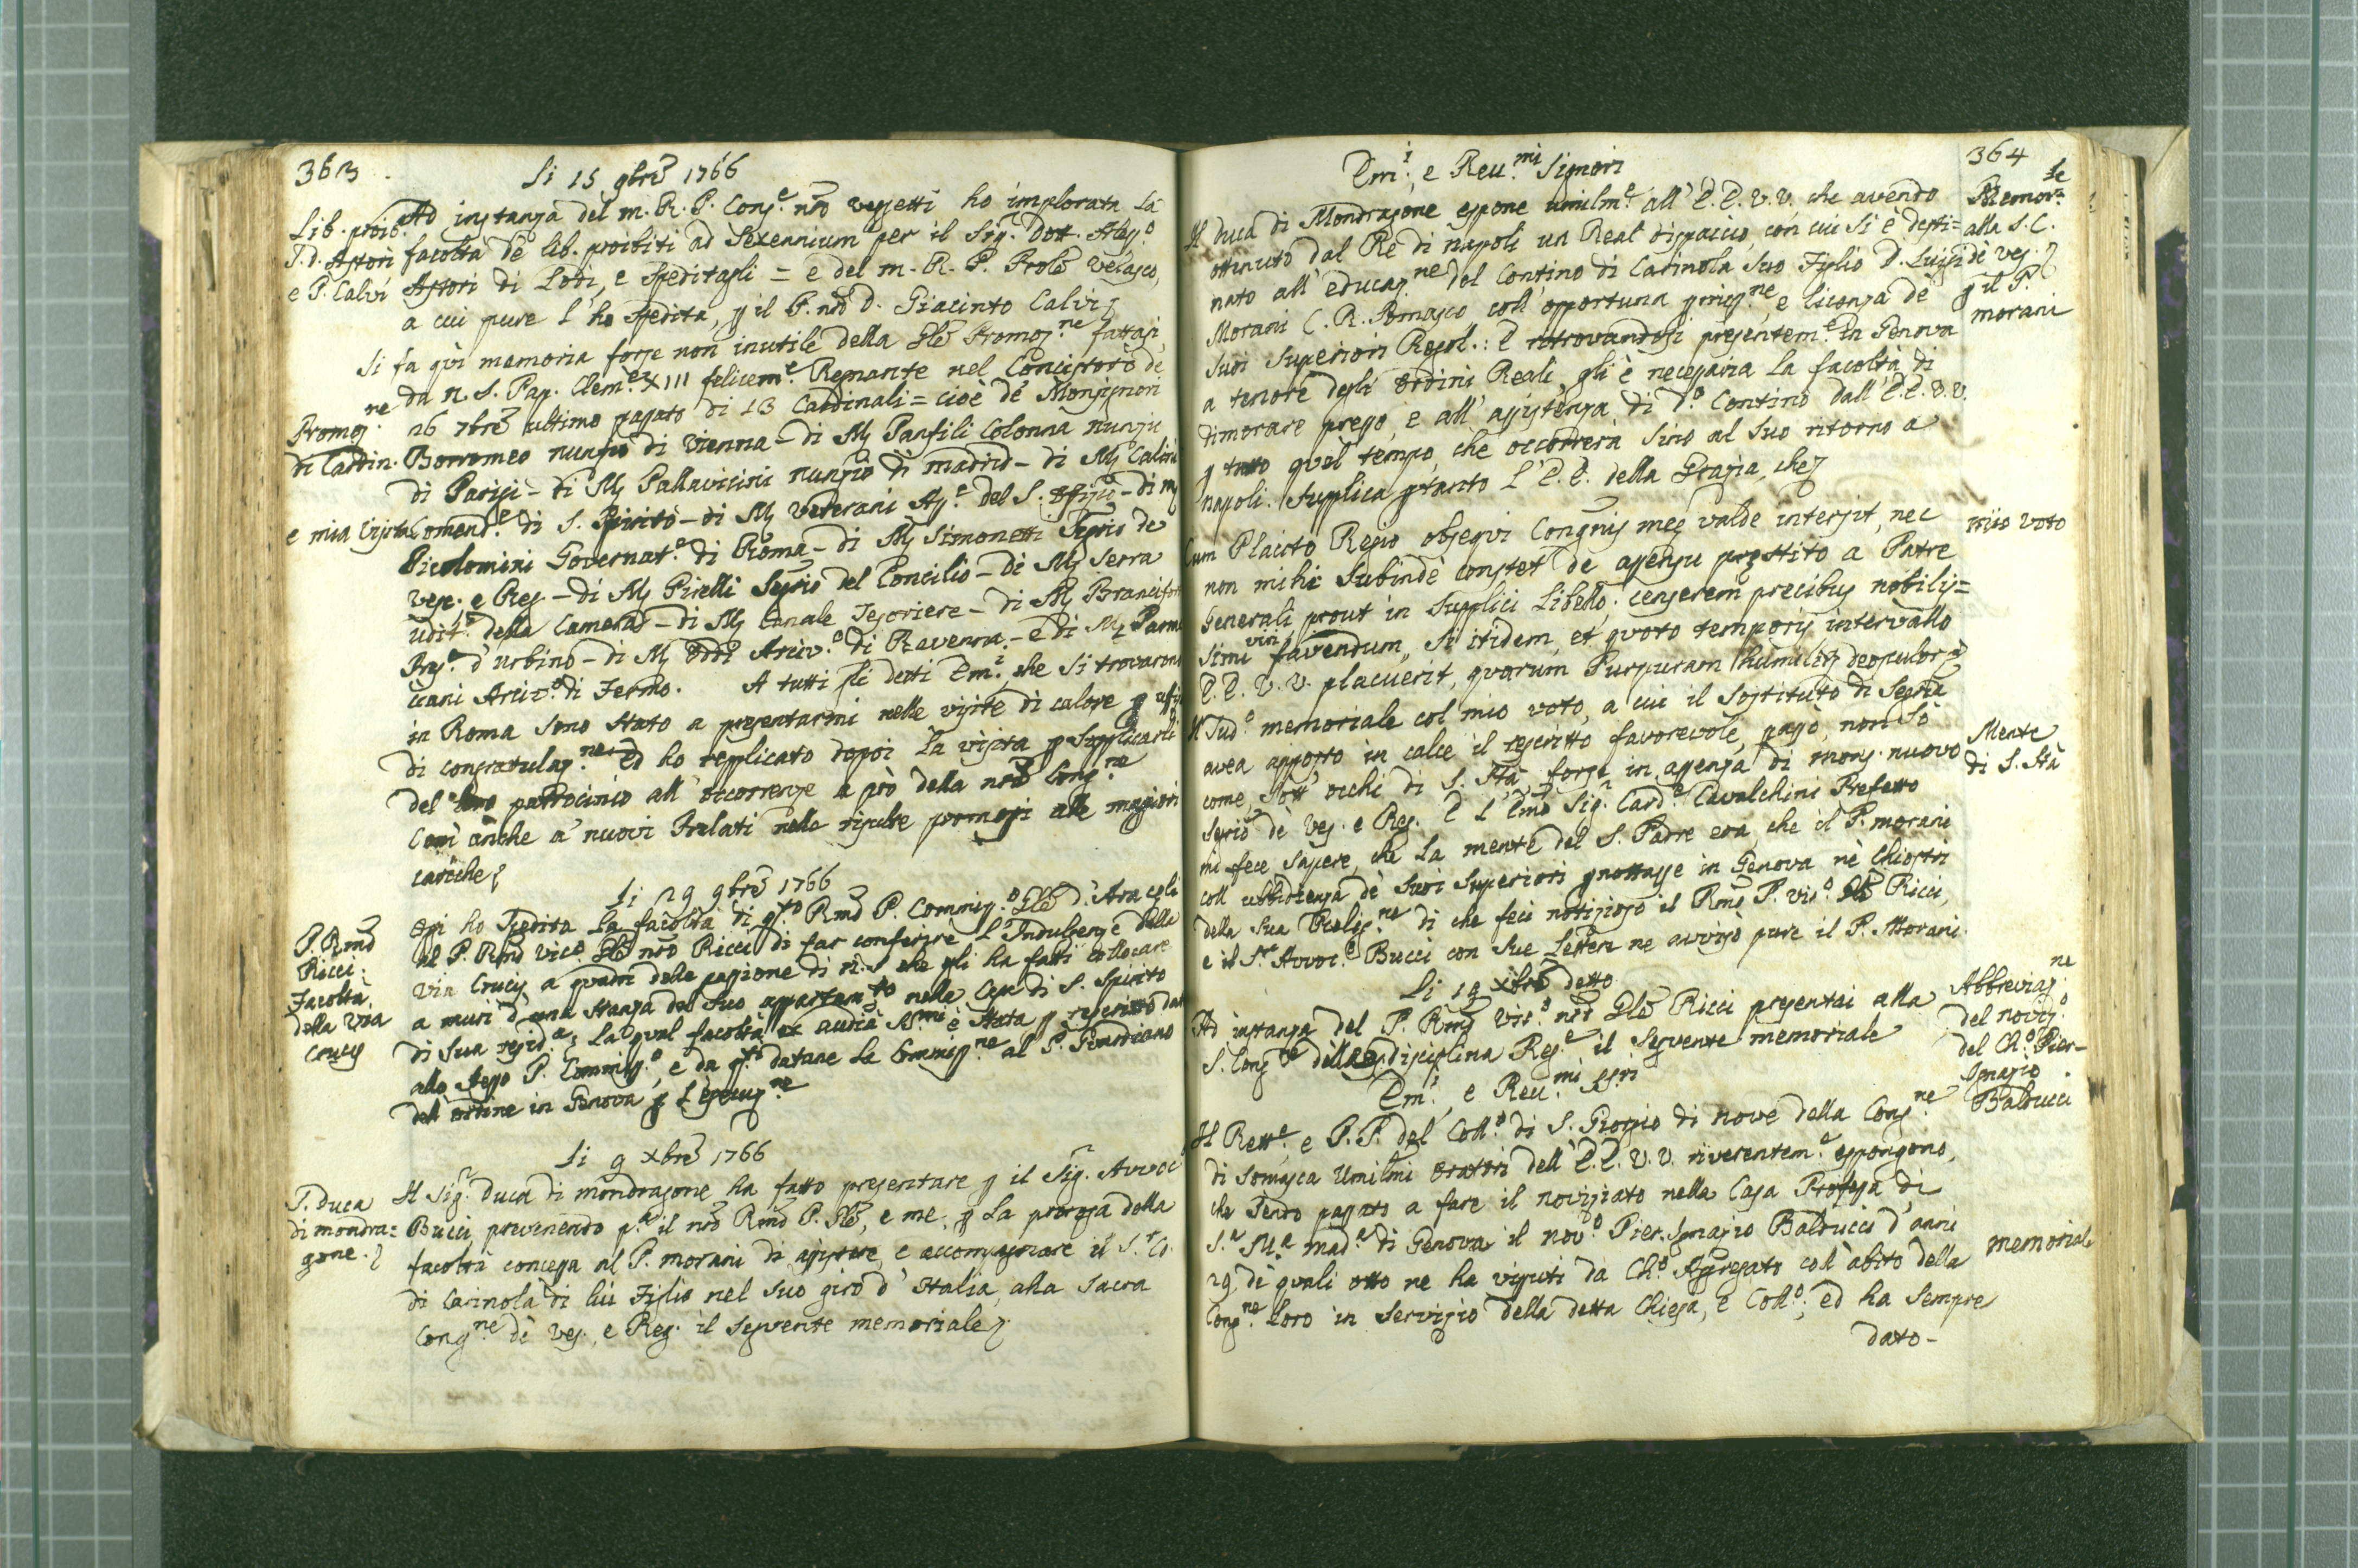 363
Li 15 9bre 1766
Lib. proib.
T. D. Astori
e P. Calvi
Ad instanza del m. R. P. Cons.e nro Vessetti ho implorata la
facoltà de lib. proibiti ad Sexennium per il Sig.r Dott.
Astori di Lodi, e speditagli = e del m. R. P. Prole Velasco,
a cui pure l'ho spedita, p il P. nro D. Giacinto Calvi
Promoz.ne
di Cardin.
e mia visita
Si fa qui memoria forse non inutile della Gle Promoz.ne fattasi,
da N. S. Pap. Clem.e XIII felicem.e Regnante nel Concistoro de
26 7bre ultimo passato di 13 Cardinali = cioè de Monsignori
Borromeo nunzio di Vienna - di Mg Panfili Colonna nunzio
di Parigi - di Mg Pallavicini nunzio di madrid - di Mg Calini
di Mg Veterani As.e del S. Offizio - di Mg
Comend.e di S. Spirito
Picolomini Governat.e di Roma - di Mg Simonetti Segrio de
Vesc. e Reg. - di Mg Pirelli Segrio del Concilio - di Mg Serra
Udit.e della Camera - di Mg Canale Tesoriere - di Mg Branciforte
Pres.e d'Urbino - di Mg Oddi Arciv.o di Ravenna - e di Mg Parac
ciani Arciv.o di Fermo. A tutti gli detti Em.i, che si trovarono
in Roma sono stato a presentarmi nelle visite di calore p uffizj
di congratulaz.ne ed ho replicato dopoi la visita p supplicarli
del loro patrocinio all'occorrenze a prò della nra Cong.ne
Così anche a' nuovi Prelati nelle risulte promossi alle maggiori
cariche
Li 29 9bre 1766
P. Rmo
Ricci.
Facoltà
della Via
Crucis
Ogi ho spedita la facoltà di qs.to Rmo P. Commis.o Gle d'Araceli
al P. Rmo Vic.o Gle nro Ricci di far conferire l'Indulgenze della
Via Crucis a quadri della passione di N. S. che gli ha fatti collocare
a muri d'una stanza del suo appartam.to nella Casa di S. Spirito
di sua resid.a; la qual facoltà ex audia SS.mi è stata p rescritto data
allo stesso P. Commis.o, e da qs.ti datane la Commiss.ne al P. Guardiano
dell'ordine in Genova p l'esecuz.ne
Li 9 xbre 1766
S. Duca
di mondra=
gone.
Il Sig.r Duca di mondragone ha fatto presentare p il Sig.r Avvoc.
Bucci, prevenendo p.a il nro Rmo P. Gle, e me, p la proroga della
facoltà concessa al P. morani di assistere, e accompagnare il S.r Co.
di Carinola di lui Figlio nel suo giro d'Italia, alla Sacra
Cong.ne de Ves., e Reg. il seguente memoriale
364
Em.i, e Reu.mi Signori
Memor.le
alla S. C.
de Ves.
p il P.
morani
Il Duca di Mondragone espone umilm.e all'E.E. V.V. che avendo
ottenuto dal Re di napoli un Real dispaccio, con cui si è desti=
nato all'educaz.ne del Contino di Carinola suo Figlio D. Luigi il P.
Morani C. R. Somasco coll'opportuna pmiss.ne, e licenza de
suoi Superiori Regol.: E ritrovandosi presentem.e in Genova
a tenore degli Ordini Reali, gli è necessaria la facoltà di
dimorare presso, e all'assistenza di d.o Contino dall'E.E. V.V.
p tutto quel tempo, che occorrerà sino al suo ritorno a
napoli. Supplica ptanto l'E.E. della Grazia, che
mio voto
Cum Placito Regio obsequi Congnis meę valde intersit, nec
non mihi subindè constet de assensu pręstito a Patre
Generali prout in supplici libello; censerem precibus nobilis=
simi viri favendum, si itidem, et quoto temporis intervallo
E.E. V.V. placuerit, quarum Purpuram humiliter deosculor
Mente
di S. Stà
Il sud.o memoriale col mio voto, a cui il sostituto di Segria
avea apposto in calce il rescritto favorevole, passò, non sò
come, sott'occhi di S. Stà forse in assenza di mons. nuovo
Segrio de Ves. e Reg. E l'Emo Sig.r Card.e Cavalchini Prefetto
mi fece sapere, che la mente del S. Padre era, che il P. morani
coll'ubbidienza de suoi Superiori pnottasse in Genova ne Chiostri
della sua Relig.ne di che feci notizioso il Rmo P. Vic.o Gle Ricci,
e il S.r Avvoc.o Bucci con sue Lettere ne avvisò pure il P. Morani.
Li 19 xbre detto
Abbreviaz.ne
del noviz.o
del Ch.o Pier-
Ignazio
Balducci
Ad instanza del P. Rmo Vic.o nro Gle Ricci presentai alla
S. Cong.ne della disciplina Reg.e il seguente memoriale
Em.i, e Reu.mi Sg.ri
Il Rett.e e P.P. del Coll.o di S. Giorgio di nove della Cong.ne
di Somasca Umilmi Oratori dell'E.E. V.V. riverentem.e espongono,
che sendo passato a fare il noviziato nella Casa Professa di
S.a M.a Mad.a di Genova il nov.o Pier. Ignazio Balducci d'anni
memoriale
29, de quali otto ne ha vissuti da Ch.o Aggregato coll'abito della
Cong.ne loro in servizio della detta Chiesa, e Coll.o; ed ha sempre
dato-